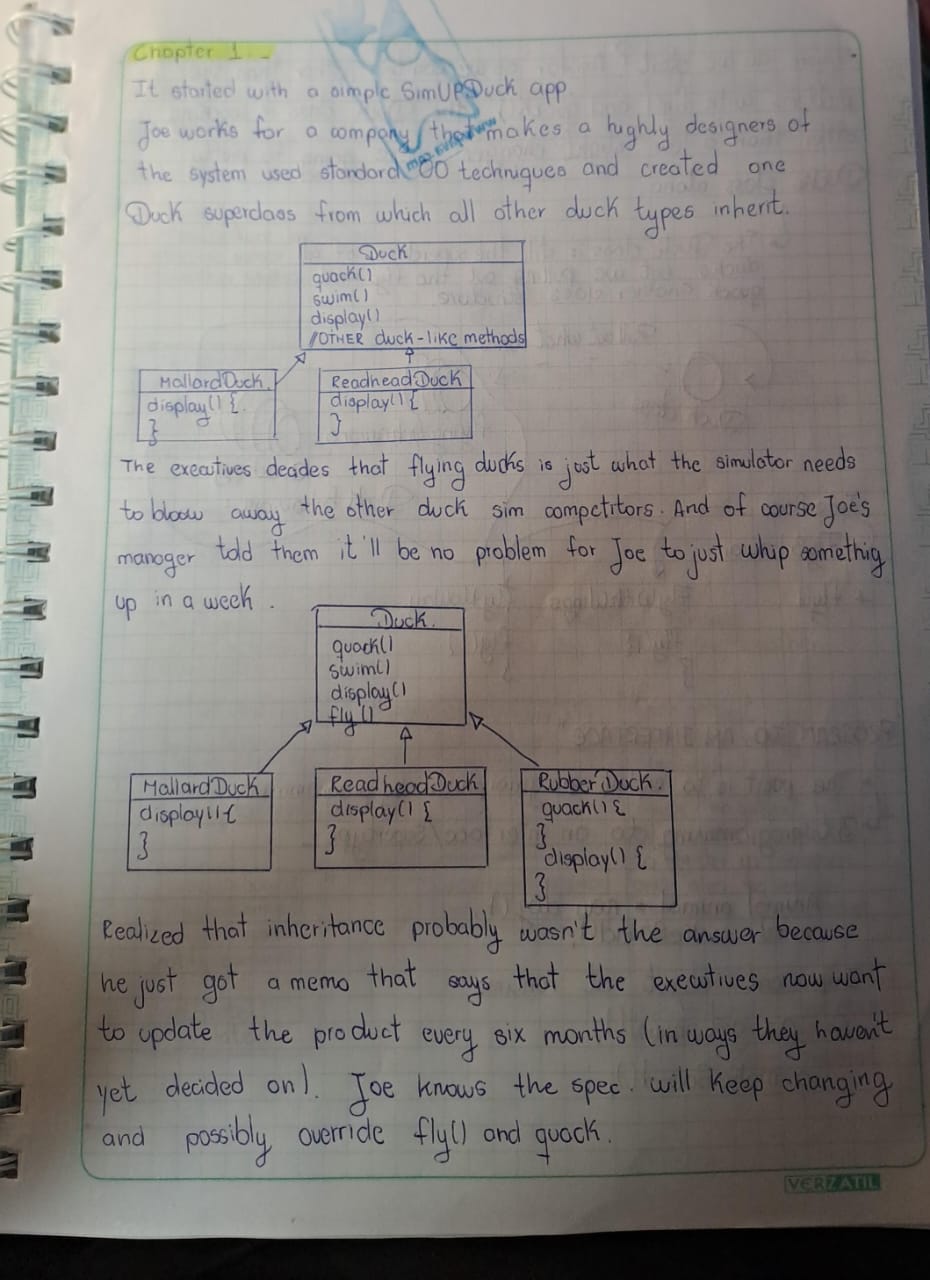 Chapter 1.
It started with a simple SimUPDuck app
Joe works for a company that makes a highly designers of
the system used standard OO techniques and created one
Duck superclass from which all other duck types inherit.
Duck
quack()
swim()
display()
//OTHER duck-like methods
MallardDuck
display() {
}
ReadheadDuck
display() {
}
The executives decides that flying ducks is just what the simulator needs
to bloow away the other duck sim competitors. And of course Joe's
manager told them it'll be no problem for Joe to just whip somethig
up in a week.
Duck.
quack()
swim()
display()
fly()
MallardDuck
display() {
}
ReadheadDuck
display() {
}
RubberDuck.
quack() {
}
display() {
}
Realized that inheritance probably wasn't the answer because
he just got a memo that says that the executives now want
to update the product every six months (in ways they haven't
yet decided on). Joe knows the spec. will keep changing
and possibly override fly() and quack.
VERZATIL